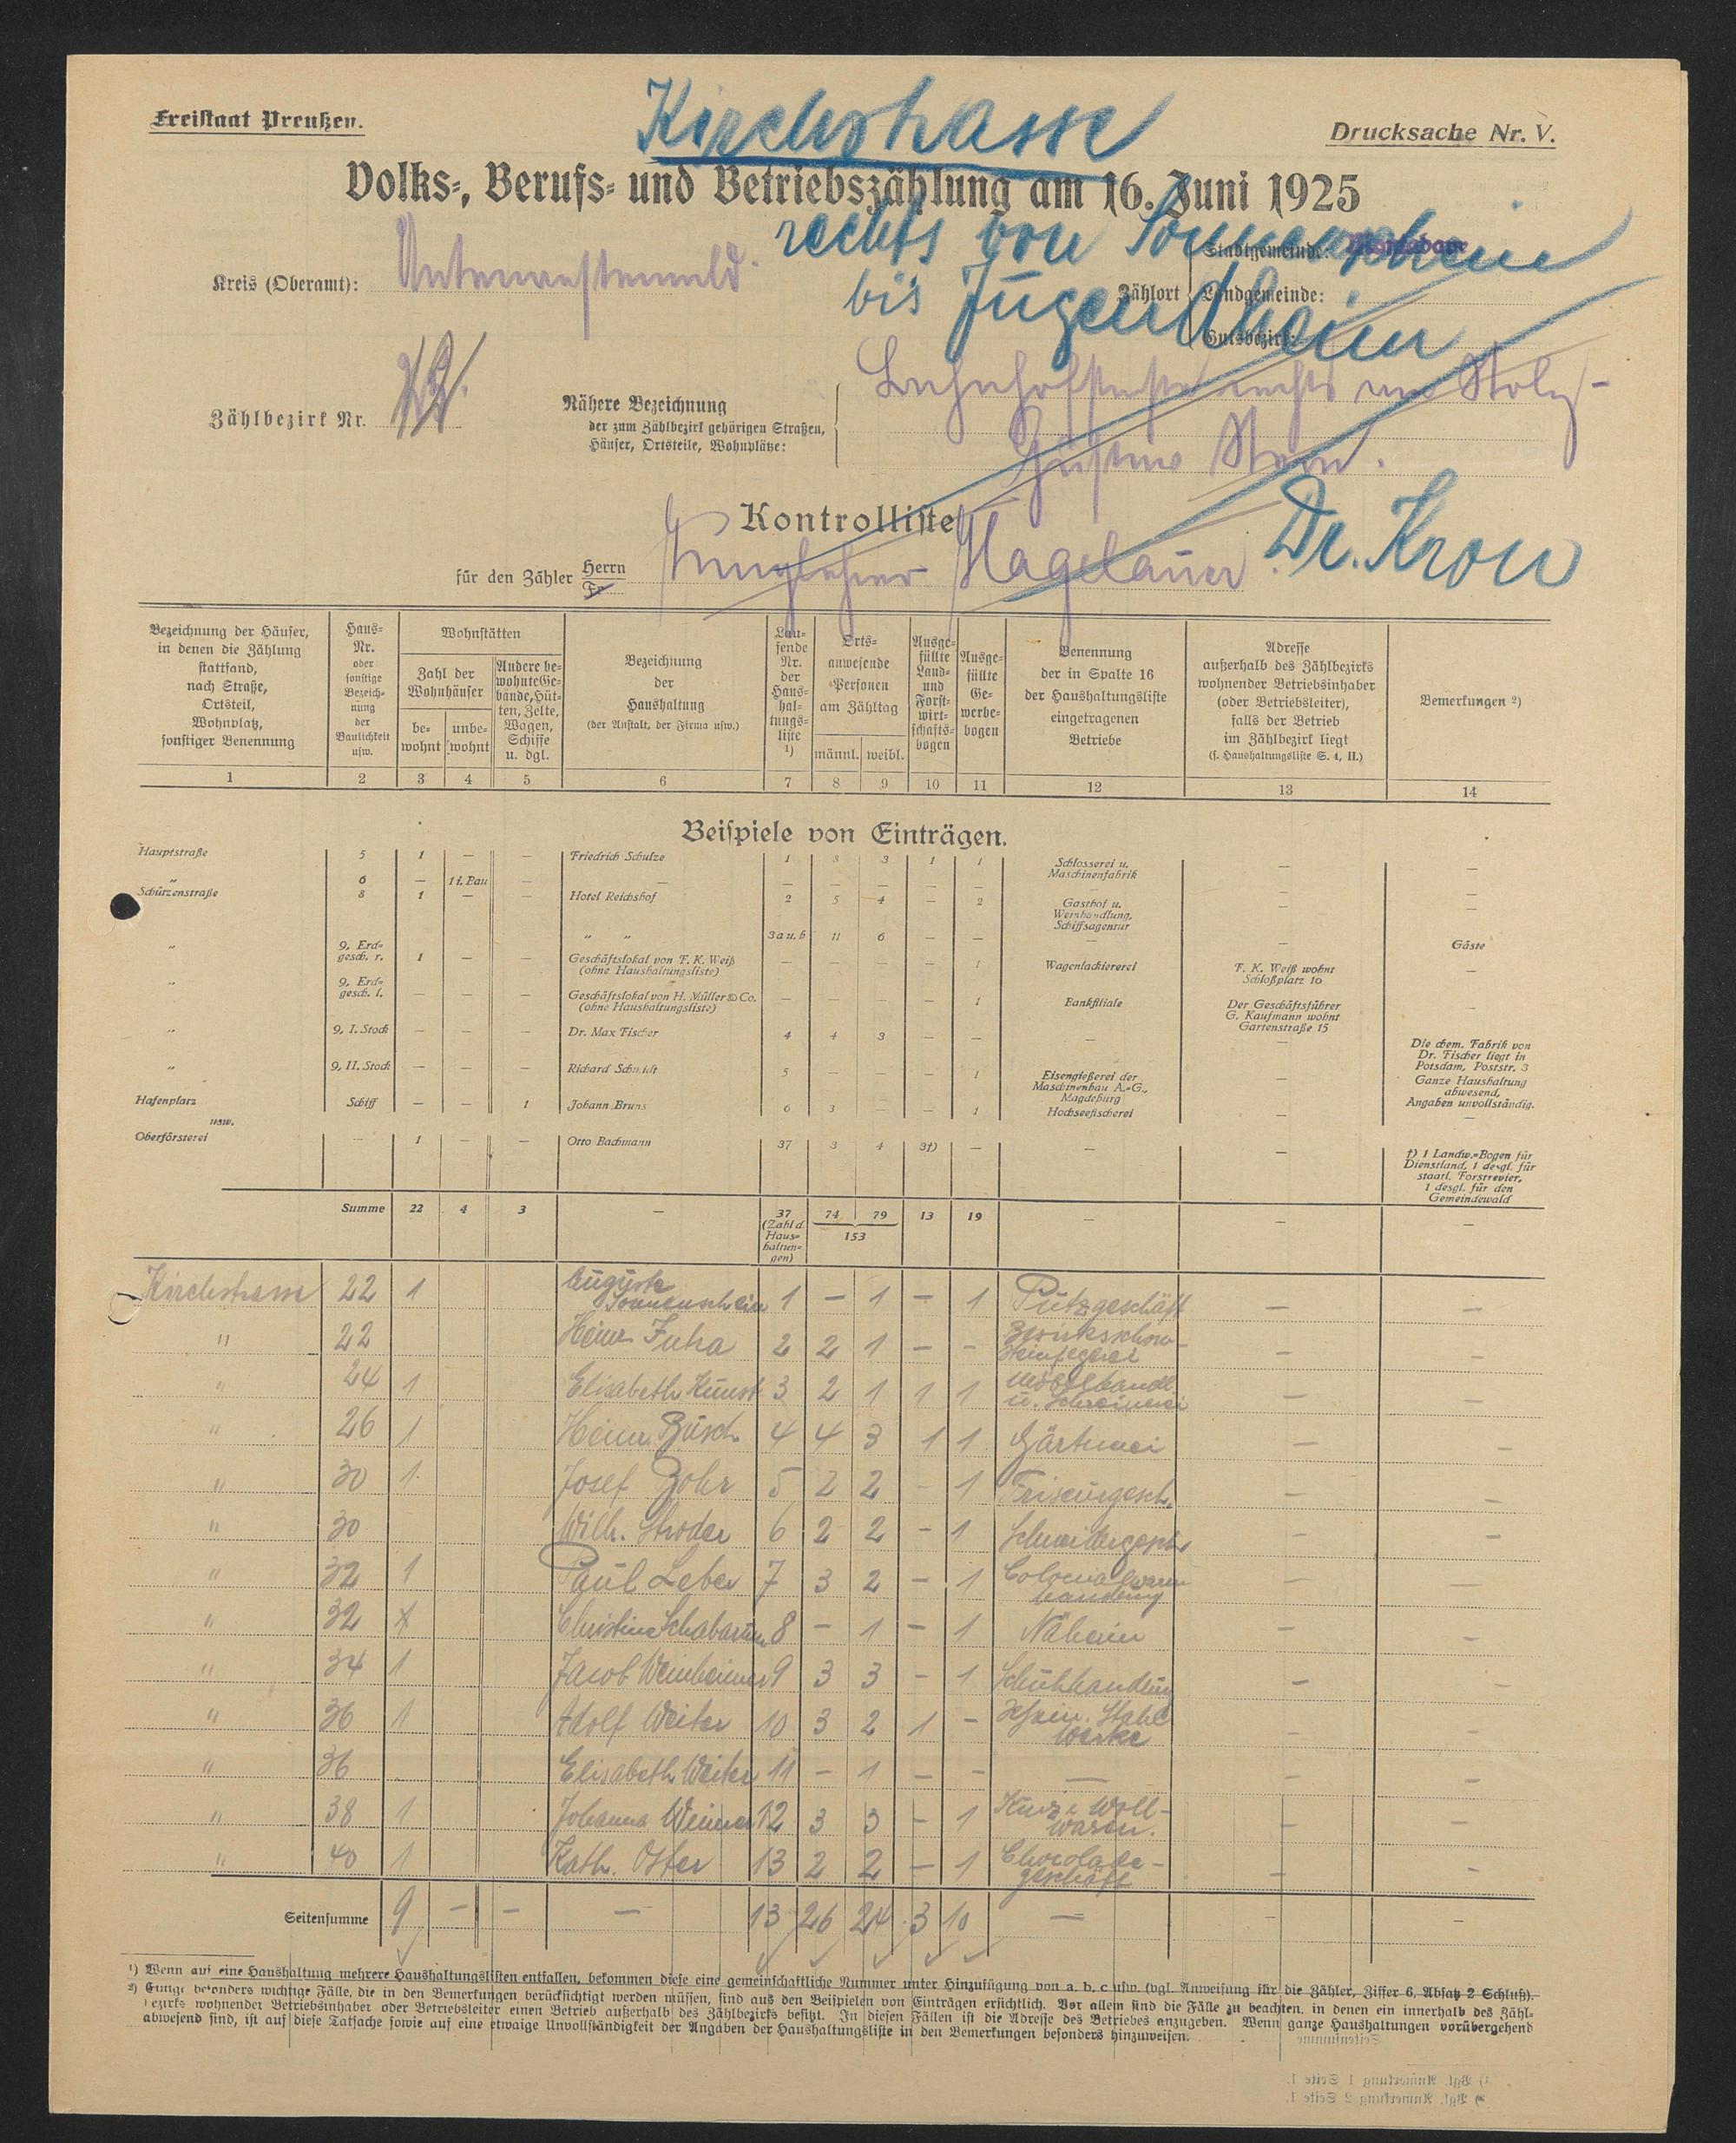 Freistaat Preußen.
Kirchstrasse
Drucksache Nr. V.
Volks-, Berufs- und Betriebszählung am 16. Juni 1925
rechts von Sonnenschein
bis Jugendheim
Kreis (Oberamt): Unterwesterwald.
Zählort
Stadtgemeinde: Montabaur
Landgemeinde:
Gutsbezirk:
Zählbezirk Nr.
Nähere Bezeichnung
der zum Zählbezirk gehörigen Straßen,
Häuser, Ortsteile, Wohnplätze:
Bahnhofstraße rechts von Stolz-
Gustav Stern.
Kontrolliste
für den Zähler Herrn Hagelauer Dr. Kron
Fr
Bezeichnung der Häuser, in denen die Zählung stattfand, nach Straße, Ortsteil, Wohnplatz, sonstiger Benennung
Haus-Nr. oder sonstige Bezeichnung der Baulichkeit usw.
Wohnstätten
Zahl der Wohnhäuser
bewohnt
unbewohnt
Andere bewohnte Gebäude, Hütten, Zelte, Wagen, Schiffe u. dgl.
Bezeichnung der Haushaltung (der Anstalt, der Firma usw.)
Laufende Nr. der Haushaltungsliste 1)
Ortsanwesende Personen am Zähltag
männl. weibl.
Ausgefüllte Land- und Forstwirtschaftsbogen
Ausgefüllte Gewerbebogen
Benennung der in Spalte 16 der Haushaltungsliste eingetragenen Betriebe
Adresse außerhalb des Zählbezirks wohnender Betriebsinhaber (oder Betriebsleiter), falls der Betrieb im Zählbezirk liegt (s. Haushaltungsliste S. 4, II.)
Bemerkungen 2)
1 2 3 4 5 6 7 8 9 10 11 12 13 14
Beispiele von Einträgen.
Hauptstraße 5 1 — — Friedrich Schulze 1 3 3 1 1 Schlosserei u. Maschinenfabrik — —
„ 6 — 1 i. Bau — — — — — — — — — —
Schützenstraße 8 1 — — Hotel Reichshof 2 5 4 — 2 Gasthof u. Weinhandlung, Schiffsagentur — —
„ „ 3 a u. b 11 6 — — — — Gäste
„ 9, Erdgesch. r. 1 — — Geschäftslokal von F. K. Weiß (ohne Haushaltungsliste) — — — — 1 Wagenlackiererei F. K. Weiß wohnt Schloßplatz 10 —
„ 9, Erdgesch. l. — — — Geschäftslokal von H. Müller & Co. (ohne Haushaltungsliste) — — — — 1 Bankfiliale Der Geschäftsführer G. Kaufmann wohnt Gartenstraße 15 —
„ 9, I. Stock — — — Dr. Max Fischer 4 4 3 — — — — Die chem. Fabrik von Dr. Fischer liegt in Potsdam, Poststr. 3
„ 9, II. Stock — — — Richard Schmidt 5 — — — 1 Eisengießerei der Maschinenbau A.-G., Magdeburg — Ganze Haushaltung abwesend, Angaben unvollständig.
Hafenplatz Schiff — — 1 Johann Bruns 6 3 — — 1 Hochseefischerei — —
usw.
Oberförsterei — 1 — — Otto Bachmann 37 3 4 3†) — — — †) 1 Landw.-Bogen für Dienstland, 1 desgl. für staatl. Forstrevier, 1 desgl. für den Gemeindewald
Summe 22 4 3 — 37 (Zahl d. Haushaltungen) 74 79 13 19 — — —
153
Kirchstrasse 22 1 Auguste Sonnenschein 1 — 1 — 1 Putzgeschäft — —
" 22 Heinr. Fuhr 2 2 1 — — Bezirksschornsteinfegerei — —
" 24 1 Elisabeth Kunst 3 2 1 1 1 Möbelhandl. u. Schreinerei — —
" 26 1 Heinr. Busch 4 4 3 1 1 Gärtnerei — —
" 30 1 Josef Bohr 5 2 2 — 1 Friseurgesch. — —
" 30 Wilh. Stroder 6 2 2 — 1 — —
" 32 1 Paul Leber 7 3 2 — 1 Colonialwarenhandlung — —
" 32 Christine Schabarum 8 — 1 — 1 Näherin — —
" 34 1 Jacob Weinheimer 9 3 3 — 1 Schuhhandlung — —
" 36 1 Adolf Weiter 10 3 2 1 — Rhein. Stahlwerke — —
" 36 Elisabeth Weiter 11 — 1 — — — — —
" 38 1 Johanna Weimer 12 3 3 — 1 Kurz u. Wollwaren. — —
" 40 1 Kath. Oster 13 2 2 — 1 Chocoladegeschäft — —
Seitensumme 9 — — — 13 26 24 3 10 — — —
1) Wenn auf eine Haushaltung mehrere Haushaltungslisten entfallen, bekommen diese eine gemeinschaftliche Nummer unter Hinzufügung von a, b, c usw. (vgl. Anweisung für die Zähler, Ziffer 6, Absatz 2 Schluß).
2) Einige besonders wichtige Fälle, die in den Bemerkungen berücksichtigt werden müssen, sind aus den Beispielen von Einträgen ersichtlich. Vor allem sind die Fälle zu beachten, in denen ein innerhalb des Zählbezirks wohnender Betriebsinhaber oder Betriebsleiter einen Betrieb außerhalb des Zählbezirks besitzt. In diesen Fällen ist die Adresse des Betriebes anzugeben. Wenn ganze Haushaltungen vorübergehend
abwesend sind, ist auf diese Tatsache sowie auf eine etwaige Unvollständigkeit der Angaben der Haushaltungsliste in den Bemerkungen besonders hinzuweisen.